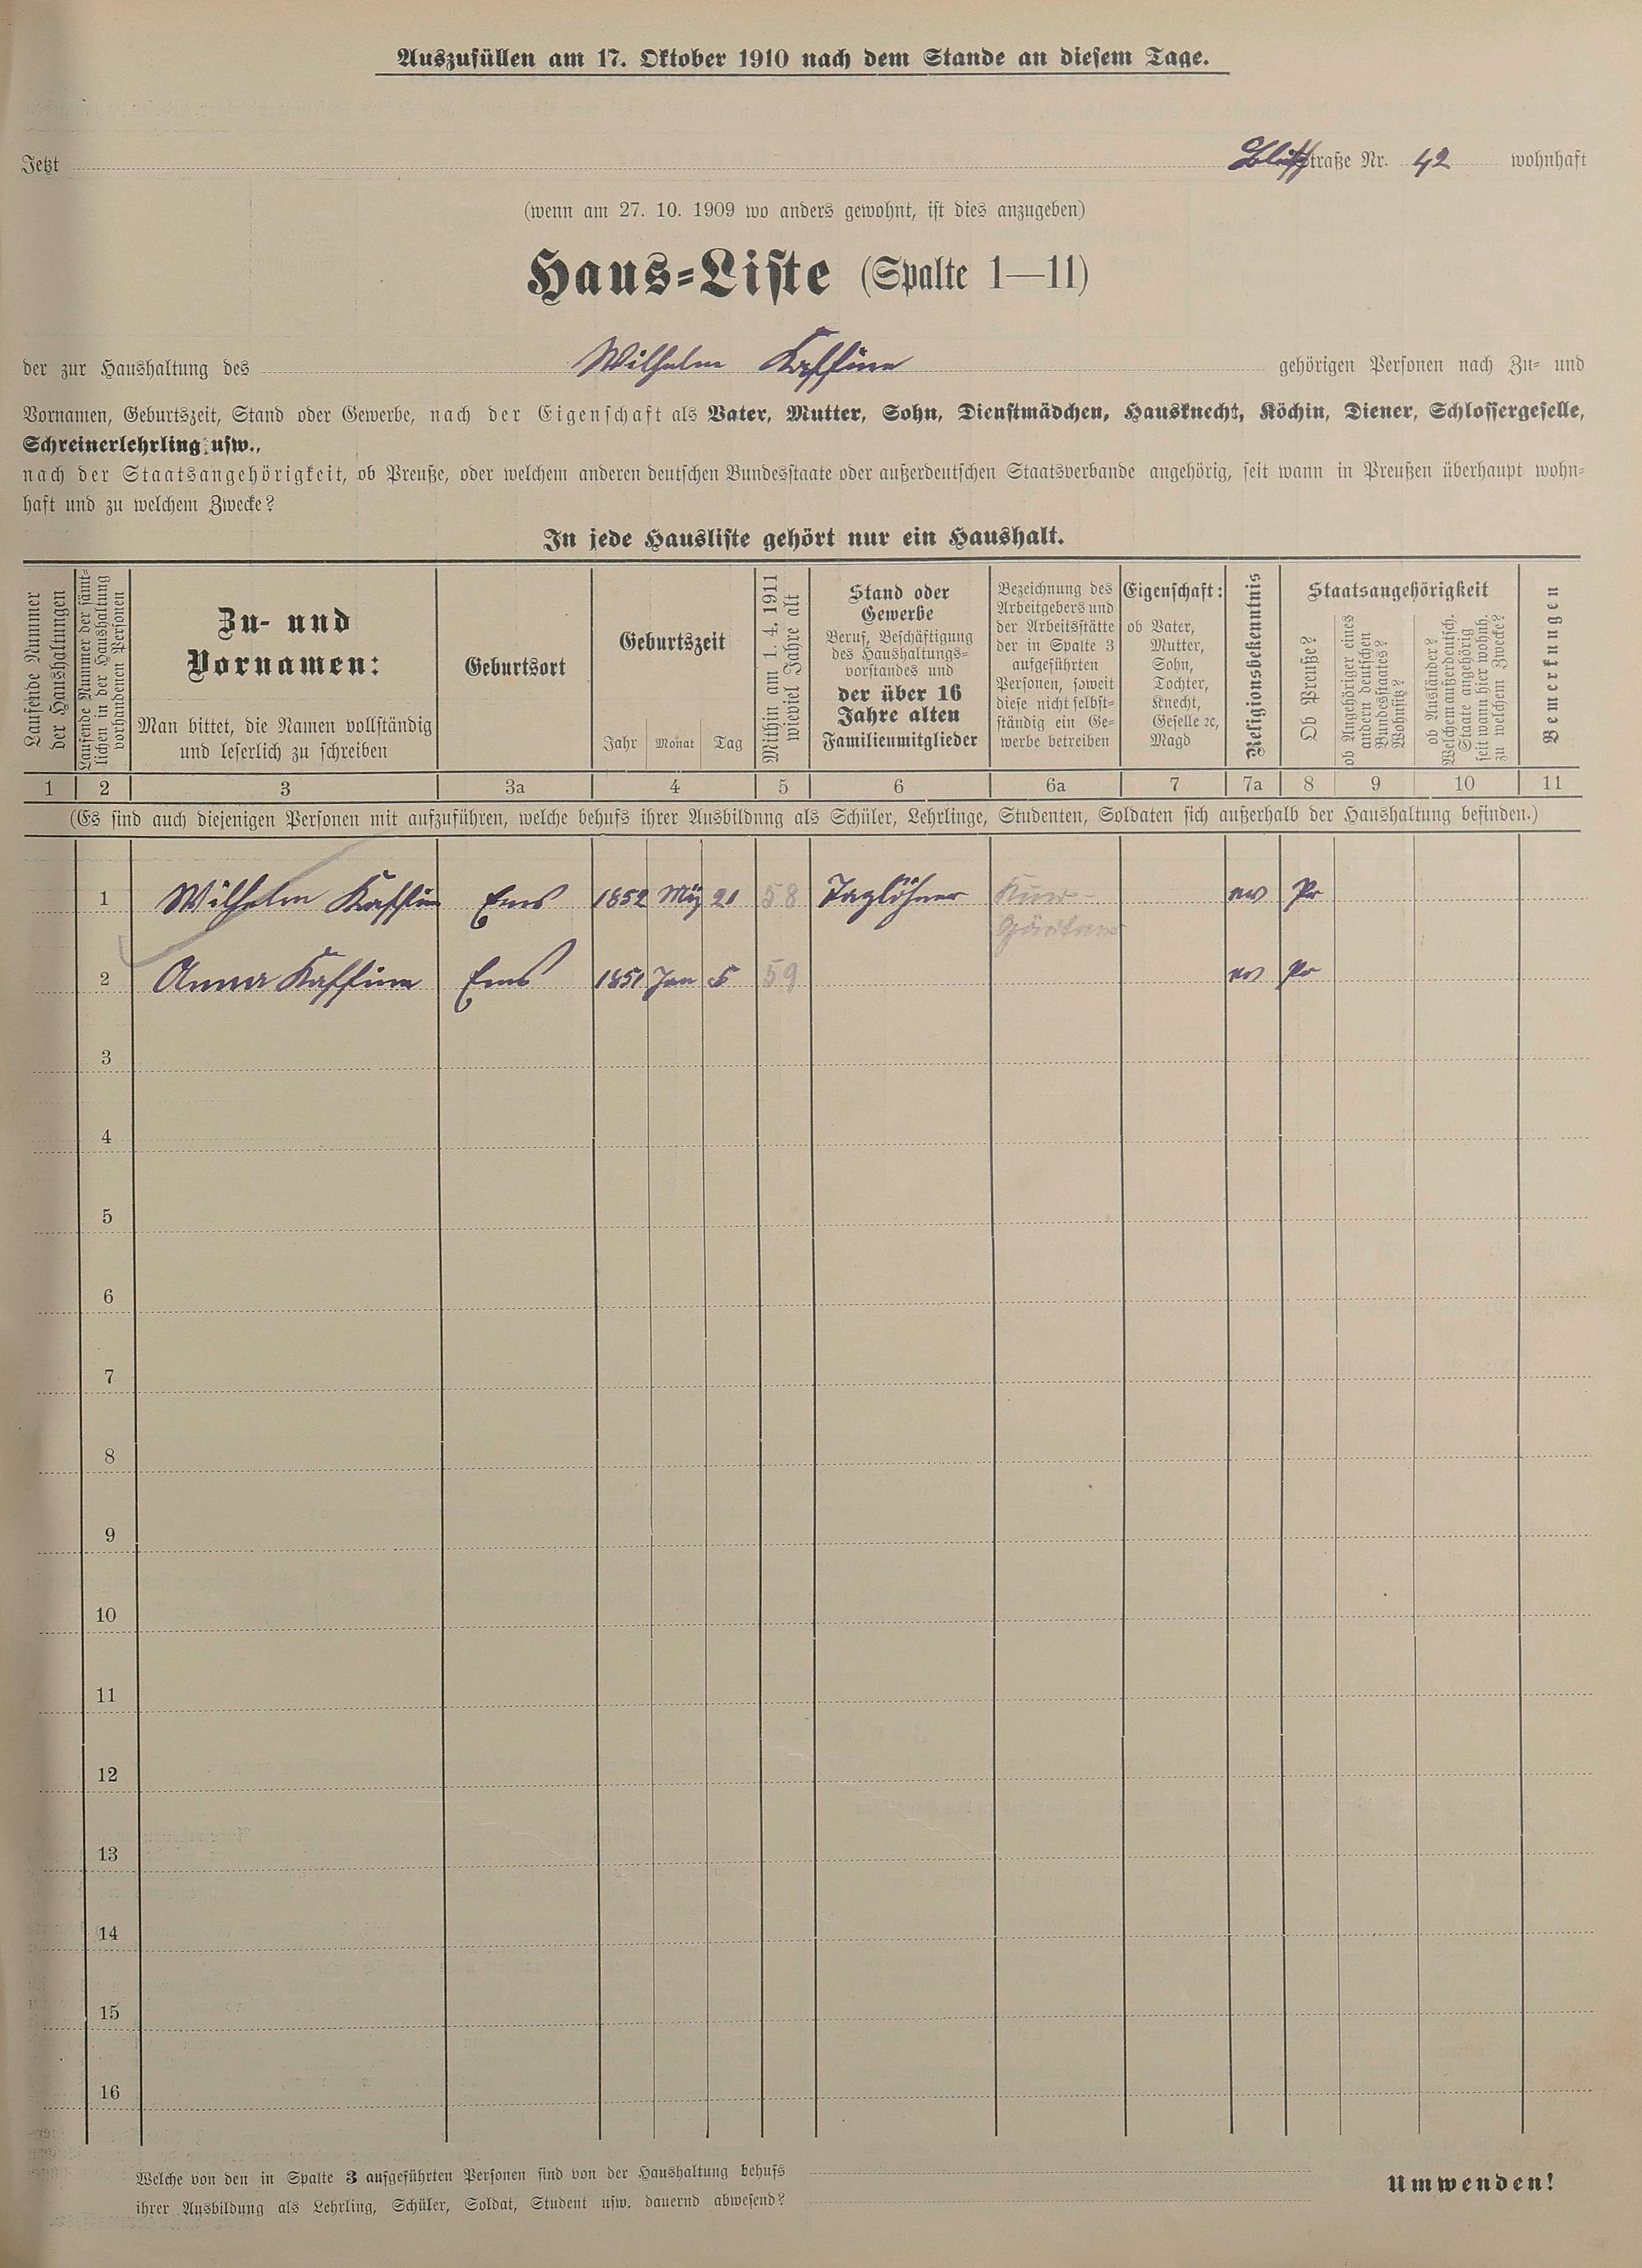 Auszufüllen am 17. Oktober 1910 nach dem Stande an diesem Tage.
Jetzt straße Nr. 42 wohnhaft
(wenn am 27. 10. 1909 wo anders gewohnt, ist dies anzugeben)
Haus-Liste (Spalte 1—11)
der zur Haushaltung des Wilhelm Kaffine gehörigen Personen nach Zu- und
Vornamen, Geburtszeit, Stand oder Gewerbe, nach der Eigenschaft als Vater, Mutter, Sohn, Dienstmädchen, Hausknecht, Köchin, Diener, Schlossergeselle,
Schreinerlehrling usw.,
nach der Staatsangehörigkeit, ob Preuße, oder welchem anderen deutschen Bundesstaate oder außerdeutschen Staatsverbande angehörig, seit wann in Preußen überhaupt wohn-
haft und zu welchem Zwecke?
In jede Hausliste gehört nur ein Haushalt.
Laufende Nummer
der Haushaltungen
Laufende Nummer der sämt-
lichen in der Haushaltung
vorhandenen Personen
Zu- und
Vornamen:
Man bittet, die Namen vollständig
und leserlich zu schreiben
Geburtsort
Geburtszeit
Jahr Monat Tag
Mithin am 1. 4. 1911
wieviel Jahre alt
Stand oder
Gewerbe
Beruf, Beschäftigung
des Haushaltungs-
vorstandes und
der über 16
Jahre alten
Familienmitglieder
Bezeichnung des
Arbeitgebers und
der Arbeitsstätte
der in Spalte 3
aufgeführten
Personen, soweit
diese nicht selbst-
ständig ein Ge-
werbe betreiben
Eigenschaft:
ob Vater,
Mutter,
Sohn,
Tochter,
Knecht,
Geselle ꝛc,
Magd
Religionsbekenntnis
Staatsangehörigkeit
Ob Preuße?
ob Angehöriger eines
andern deutschen
Bundesstaates?
Wohnsitz?
ob Ausländer?
Welchem außerdeutsch.
Staate angehörig
seit wann hier wohnh.
zu welchem Zwecke?
Bemerkungen
1 2 3 3a 4 5 6 6a 7 7a 8 9 10 11
(Es sind auch diejenigen Personen mit aufzuführen, welche behufs ihrer Ausbildung als Schüler, Lehrlinge, Studenten, Soldaten sich außerhalb der Haushaltung befinden.)
1 Wilhelm Kaffine Ems 1852 Mrz 21 58 Taglöhner ev Pr
2 Anna Kaffine Ems 1851 Jan 5 59 ev Pr
3
4
5
6
7
8
9
10
11
12
13
14
15
16
Welche von den in Spalte 3 aufgeführten Personen sind von der Haushaltung behufs
ihrer Ausbildung als Lehrling, Schüler, Soldat, Student usw. dauernd abwesend?
Umwenden!